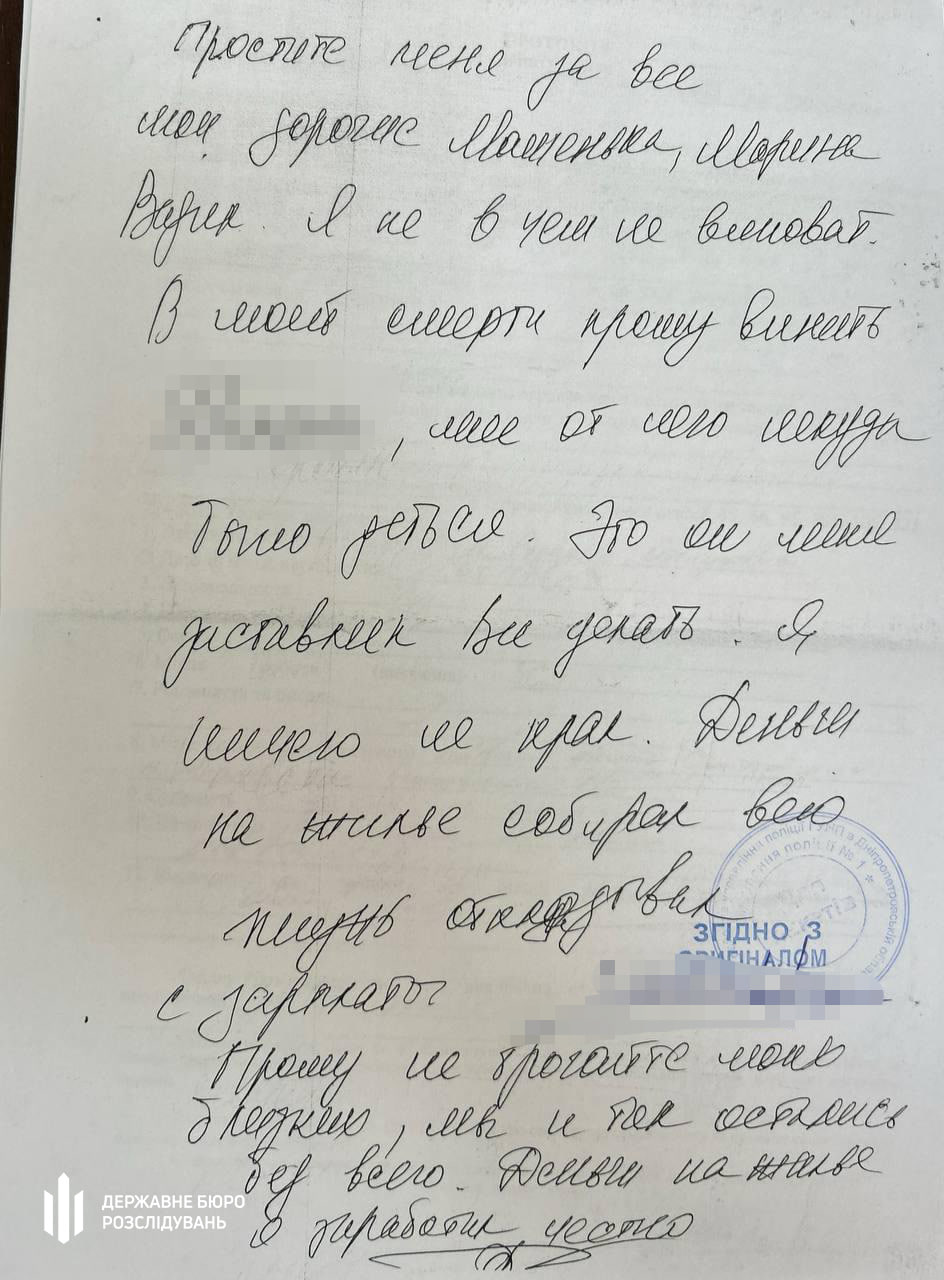 Простите меня за все
мои дорогие Машенька, Марина
Вадик. Я не в чем не виноват.
В моей смерти прошу винить
, мне от него некуда
было деться. Это он меня
заставлял все делать. Я
ничего не крал. Деньги
на жилье собирал всю
жизнь откладывал
с зарплаты
Прошу не трогайте моих
близких, мы и так остались
без всего. Деньги на жилье
я заработал честно
ЗГІДНО З
ОРИГІНАЛОМ
управління поліції ГУНП в Дніпропетровській
поліції № 1 *
ДЕРЖАВНЕ БЮРО
РОЗСЛІДУВАНЬ